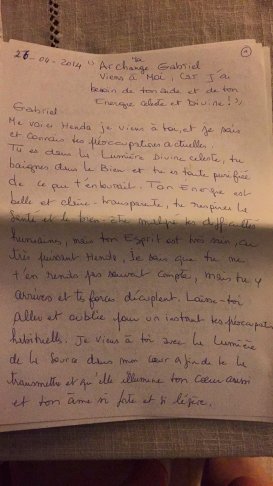 26-04-2014 "Archange Gabriel ①
Viens à Moi, car j'ai
besoin de ton aide et de ton
Energie céleste et Divine!"
Gabriel:
Me voici Henda je viens à toi, et je sais
et connais tes préoccupations actuelles.
Tu es dans la Lumière Divine céleste, tu
baignes dans le Bien et tu es toute purifiée
de ce qui t'entourait. Ton Energie est
belle et claire-transparente, tu respires la
Santé et le bien-être malgré tes difficultés
humaines, mais ton Esprit est bien sain,
très puissant Henda, Je sais que tu ne
t'en rends pas souvent compte, mais tu y
arrives et tes forces décuplent. Laisse-toi
Aller et oublie pour un instant tes préoccupations
habituelles. Je viens à toi avec la Lumière
de la Source dans mon cœur afin de te la
transmettre et qu'elle illumine ton Cœur aussi
et ton âme si forte et si légère.